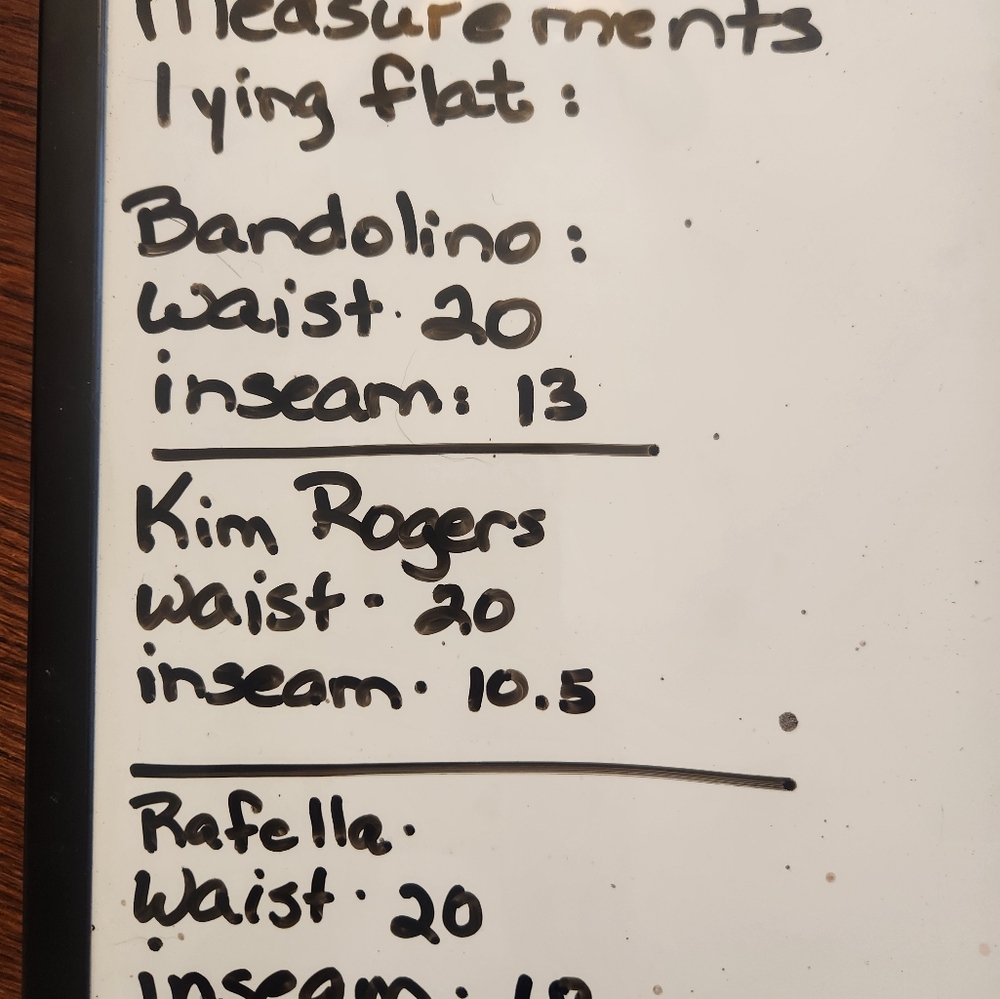 Measurements
lying flat:
Bandolino:
Waist· 20
inseam: 13
Kim Rogers
Waist· 20
inseam· 10.5
Rafella·
Waist· 20
inseam·